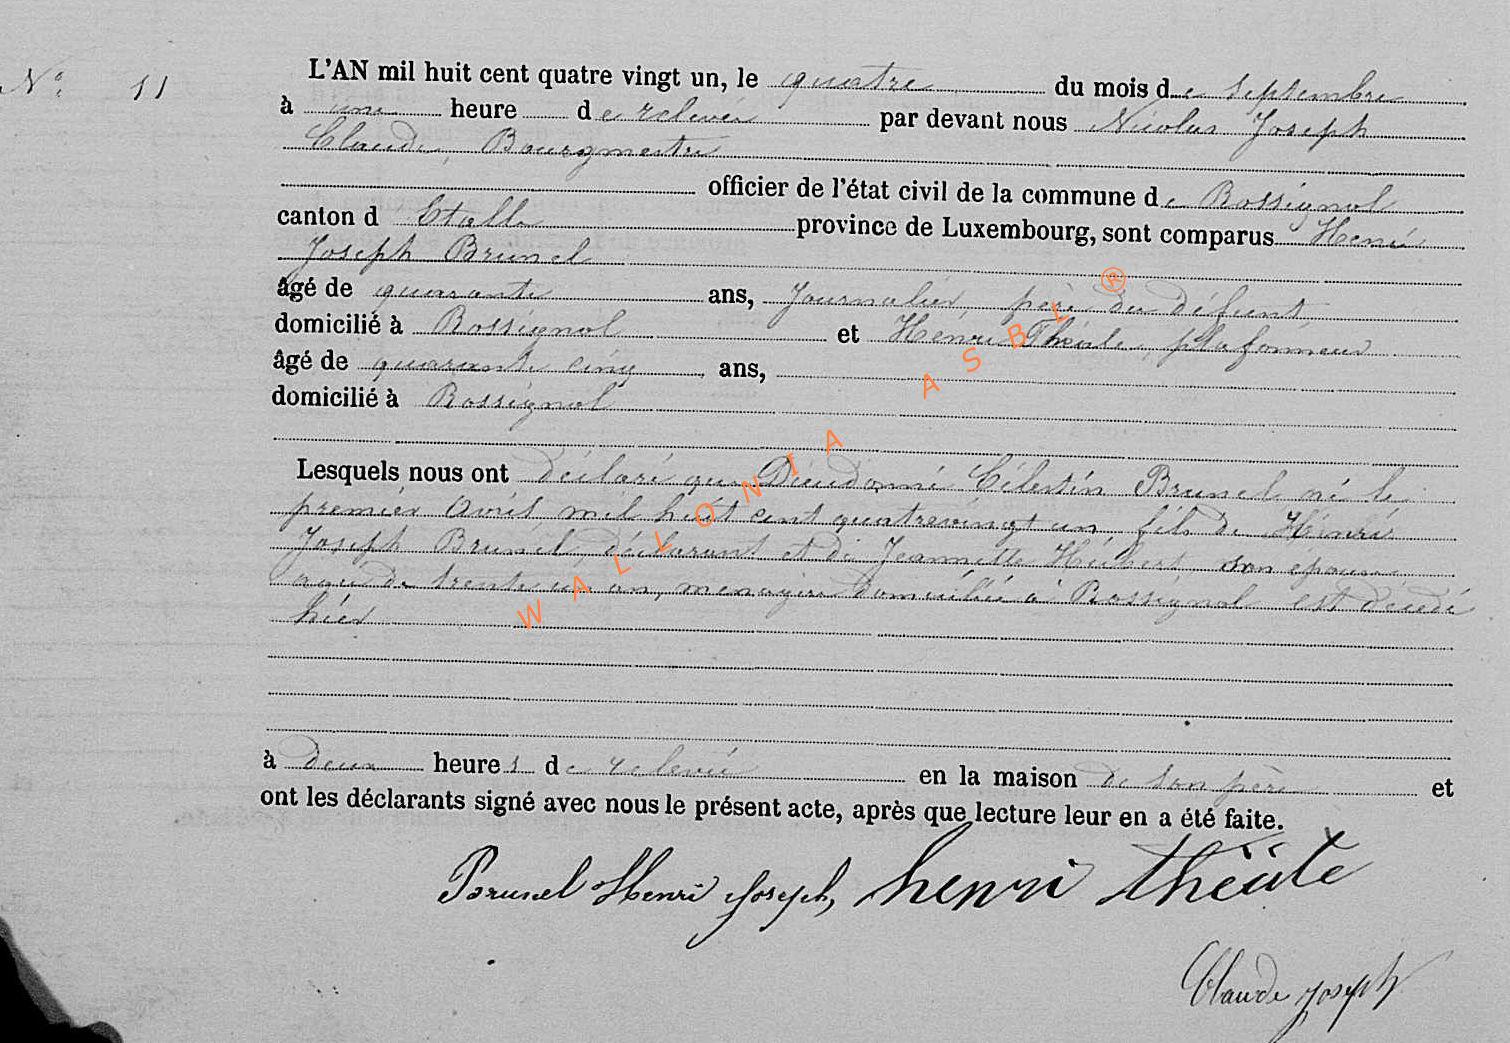 N° 11
L'AN mil huit cent quatre vingt un, le quatre du mois de Septembre
à une heure de relevée par devant nous Nicolas Joseph
Claude, Bourgmestre
officier de l'état civil de la commune de Rossignol
canton d Etalle province de Luxembourg, sont comparus Henri
Joseph Brunel
âgé de quarante ans, Journalier père du défunt
domicilié à Rossignol et Henri Théate, plafonneur
âgé de quarante cinq ans,
domicilié à Rossignol
Lesquels nous ont déclaré que Dieudonné Célestin Brunel né le
premier Avril mil huit cent quatrevingt un fils de Henri
Joseph Brunel, déclarant et de Jeannette Hubert son épouse
agée de trente un an, menagère domiciliée à Rossignol est décédé
hier
à deux heures de relevée en la maison de son père et
ont les déclarants signé avec nous le présent acte, après que lecture leur en a été faite.
Brunel Henri Joseph, henri
Claude Joseph
WALLONIA ASBL ®